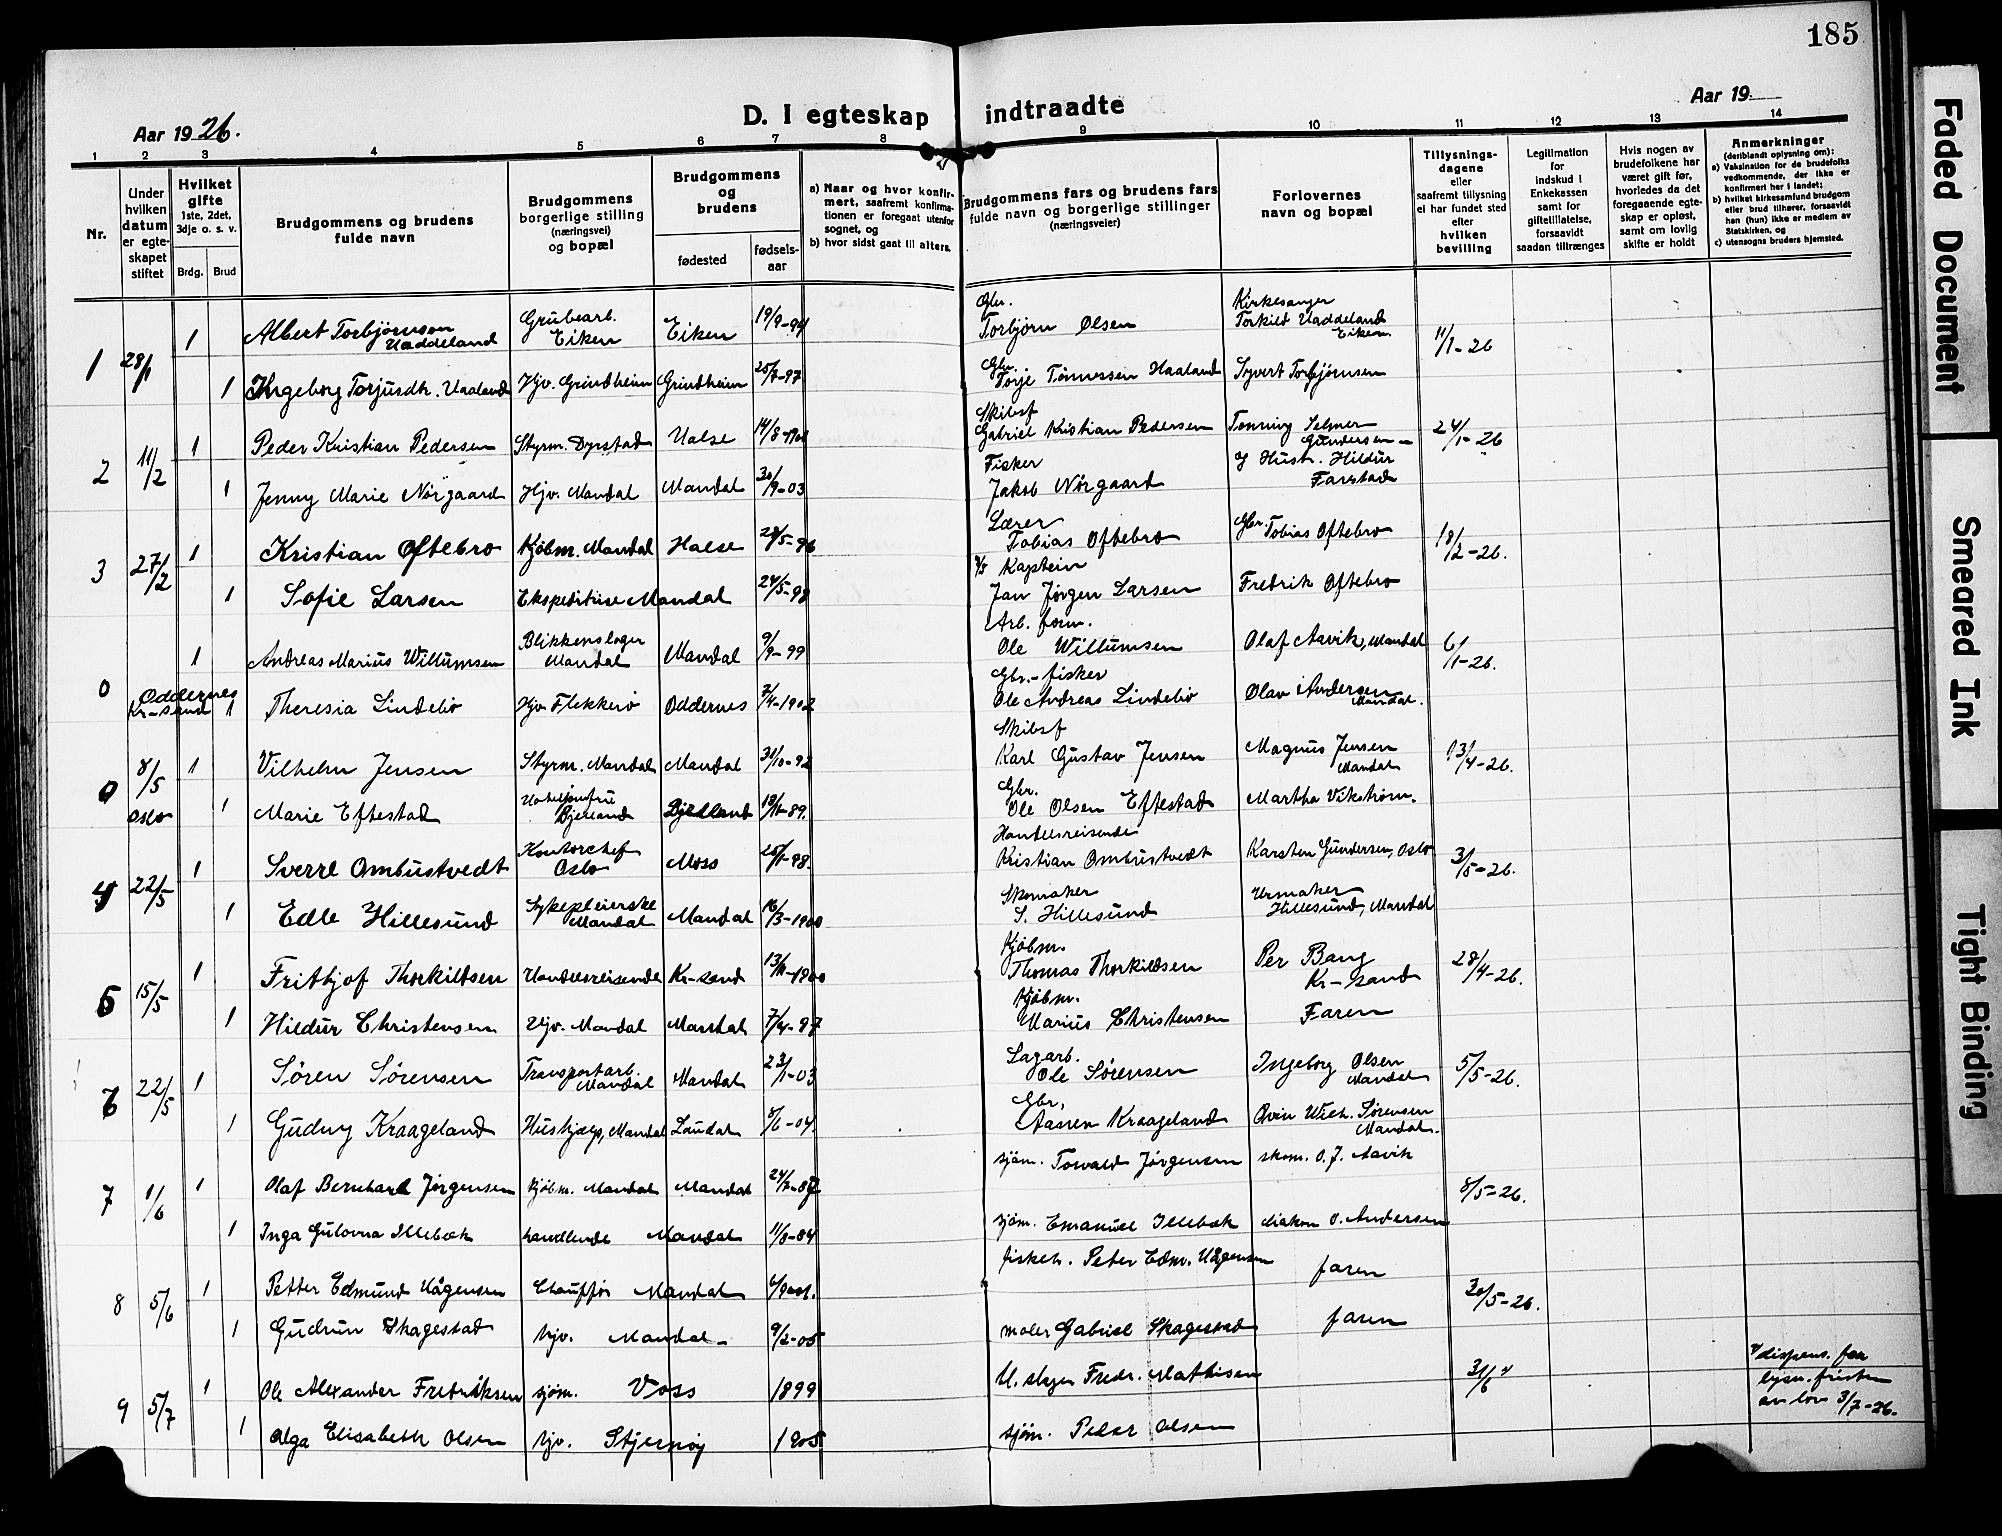 185
D. I egteskap indtraadte
Aar 1926.
Aar 19
1 2 3 4 5 6 7 8 9 10 11 12 13 14
Nr.
Under hvilken datum er egteskapet stiftet
Hvilket gifte
1ste, 2det, 3dje o. s. v.
Brdg. Brud
Brudgommens og brudens fulde navn
Brudgommens borgerlige stilling (næringsvei) og bopæl
Brudgommens og brudens
fødested
fødselsaar
a) Naar og hvor konfirmert, saafremt konfirmationen er foregaat utenfor sognet, og
b) hvor sidst gaat til alters.
Brudgommens fars og brudens fars fulde navn og borgerlige stillinger (næringsveier)
Forlovernes navn og bopæl
Tillysningsdagene eller saafremt tillysning ei har fundet sted efter hvilken bevilling
Legitimation for indskud i Enkekassen samt for giftetillatelse, forsaavidt saadan tiltrænges
Hvis nogen av brudefolkene har været gift før, hvorledes da det foregaaende egteskap er opløst, samt om lovlig skifte er holdt
Anmerkninger
(deriblandt oplysning om):
a) Vaksination for de brudefolks vedkommende, der ikke er konfirmert her i landet;
b) hvilket kirkesamfund brudgom eller brud tilhører, forsaavidt han (hun) ikke er medlem av Statskirken, og
c) utensogns bruders hjemsted.
1 28/1 1 Albert Torbjørnson Haddeland Grubearb. Eiken Eiken 19/9-94 Gbr. Torbjørn Olsen Kirkesanger Torkild Haddeland Eiken 11/1-26
1 Ingeborg Torjusdtr. Haaland Hjv. Grindheim Grindheim 25/7-97 Gbr. Torje Tønnessen Haaland Syvert Torbjørnsen
2 11/2 1 Peder Kristian Pedersen Styrm. Dyrstad Halse 14/8-1901 Skibsf Gabriel Kristian Pedersen Tønning Selmer Gundersen 24/1-26
1 Jenny Marie Nørgaard Hjv. Mandal Mandal 30/9-03 Fisker Jakob Nørgaard Hustr. Hildur Farstad
3 27/2 1 Kristian Oftebro Kjøbm. Mandal Halse 28/5-96 Lærer Tobias Oftebro Gbr. Tobias Oftebro 18/2-26.
1 Sofie Larsen Ekspeditrise Mandal 24/5-98 Kaptein Jan Jørgen Larsen Fredrik Oftebro
0 Oddernes Kr-sand 1 Andreas Marius Willumsen Blikkenslager Mandal Mandal 9/9-99 Arb. form. Ole Willumsen Olaf Aavik, Mandal 6/1-26.
1 Theresia Lindebø Hjv Flekkerø Oddernes 7/4-1902 Gbr.-fisker Ole Andreas Lindebø Olav Andersen Mandal.
0 8/5 Oslo 1 Vilhelm Jensen Styrm. Mandal Mandal 31/10-92 Skibsf Karl Gustav Jensen Magnus Jensen Mandal 13/4-26.
1 Marie Eftestad Hoteljomfru Bjelland Bjelland 19/11-89. Gbr. Ole Olsen Eftestad Martha Vikstrøm.
4 22/5 1 Sverre Ombustvedt Kontorchef Oslo Moss 25/1-98. Handelsreisende Kristian Ombustvedt Karsten Gundersen, Oslo 3/5-26.
1 Edle Hillesund Sykepleierske Mandal Mandal 16/3-1900 Skomaker S. Hillesund Urmaker Hillesund, Mandal
5 15/5 1 Frithjof Thorkildsen Handelsreisende Kr-sand 13/11-1900 Kjøbm. Thomas Thorkildsen Per Bang Kr-sand 28/4-26.
1 Hildur Christensen Hjv. Mandal Mandal 7/4-97 Kjøbm. Marius Christensen Faren
6 22/5 1 Søren Sørensen Transportarb. Mandal Mandal 23/1-03 Lagarb. Ole Sørensen Ingeborg Olsen Mandal 5/5-26.
1 Gudny Kraageland Huskjelp, Mandal Laudal 8/6-04. Gbr. Aanen Kraageland Wich. Sørensen Mandal.
7 1/6 1 Olaf Bernhard Jørgensen kjøbm. Mandal Mandal 24/7-87 sjøm. Torvald Jørgensen skom. O. J. Aavik 8/5-26.
1 Inga Gulovna Illebæk handlende Mandal 11/8-84 sjøm. Emanuel Illebæk diakon O. Andersen
8 5/6 1 Petter Edmund Hågensen Chauffør Mandal fiskeh. Peter Edm. Hågensen faren 20/5-26.
1 Gudrun Skagestad hjv. Mandal 9/2-05 maler Gabriel Skagestad faren
9 5/7 1 Ole Alexander Fredriksen sjøm. Voss 1899 Fredr. Mathisen 31/6
1 Olga Elisabeth Olsen hjv. Stjernøy 1905 sjøm. Peder Olsen
dispens. fra lysn. fristen av lov 3/7-26.
Faded Document
Smeared Ink
Tight Binding